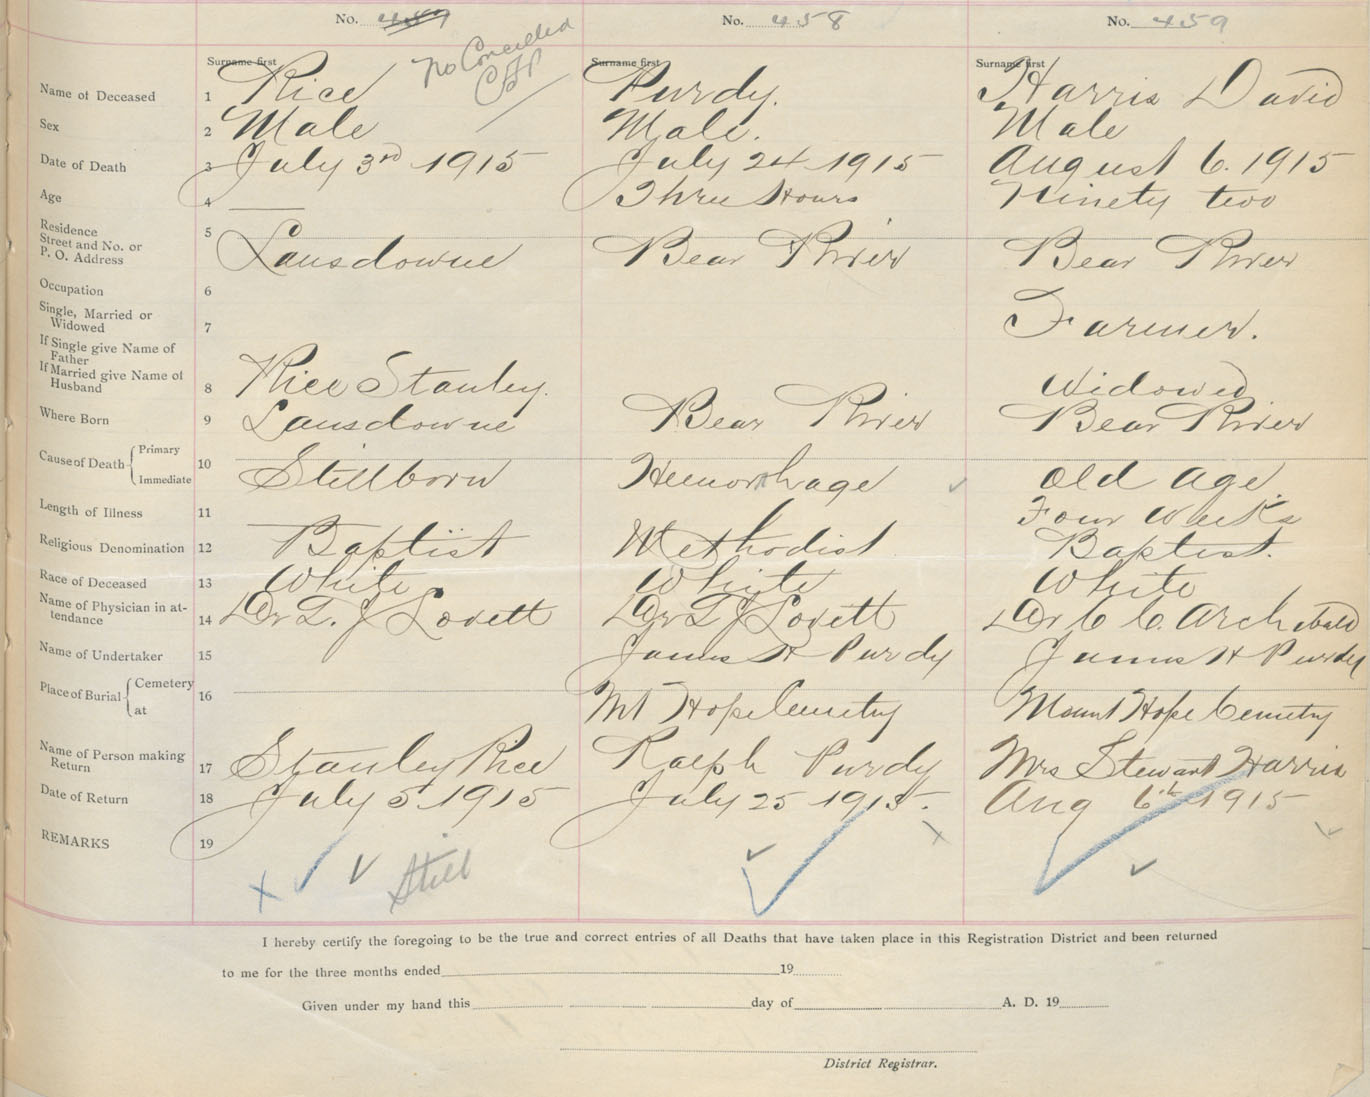 No. 458
No. 459
No Cancelled
Surname first
Surname first
Surname first
Name of Deceased 1 Rice Purdy. Harris David
Sex 2 Male Male. Male
Date of Death 3 July 3rd 1915 July 24 1915 August 6. 1915
Age 4 Three Hours Ninety two
Residence 5
Street and No. or
P. O. Address Lansdowne Bear River Bear River
Occupation 6
Single, Married or
Widowed 7 Farmer.
If Single give Name of
Father
If Married give Name of
Husband 8 Rice Stanley. Widowed
Where Born 9 Lansdowne Bear River Bear River
Cause of Death Primary
Immediate 10 Stillborn Hemorrhage Old Age
Length of Illness 11 Four Weeks
Religious Denomination 12 Baptist Methodist Baptist.
Race of Deceased 13 White White White
Name of Physician in at-
tendance 14 Dr L. J Lovett Dr L J Lovett Dr C C. Archibald
Name of Undertaker 15 James H Purdy James H Purdy
Place of Burial Cemetery
at 16 Mt Hope Cemetry Mount Hope Cemetry
Name of Person making
Return 17 Stanley Rice Ralph Purdy Mrs Stewart Harris
Date of Return 18 July 5 1915 July 25 1915. Aug 6th 1915
REMARKS 19
Still
I hereby certify the foregoing to be the true and correct entries of all Deaths that have taken place in this Registration District and been returned
to me for the three months ended 19
Given under my hand this day of A. D. 19
District Registrar.